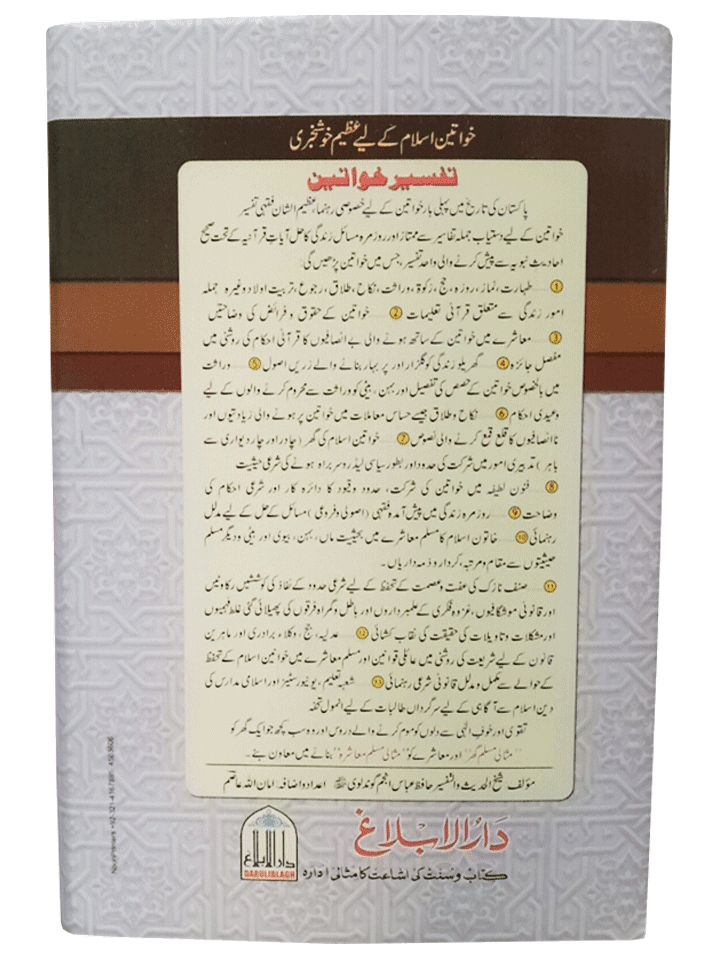 خواتین اسلام کے لیے عظیم خوشخبری
تفسیر خواتین
پاکستان کی تاریخ میں پہلی بار خواتین کے لیے خصوصی رہنما، عظیم الشان فقہی تفسیر
خواتین کے لیے دستیاب جملہ تفاسیر سے ممتاز اور روز مرہ مسائل زندگی کا حل آیات قرآنیہ کے تحت صحیح
احادیث نبویہ سے پیش کرنے والی واحد تفسیر، جس میں خواتین پڑھیں گی:
①...... طہارت، نماز، روزہ، حج، زکوٰۃ، وراثت، نکاح، طلاق، رجوع، تربیت اولاد وغیرہ جملہ
امور زندگی سے متعلق قرآنی تعلیمات ②...... خواتین کے حقوق و فرائض کی وضاحتیں
③...... معاشرے میں خواتین کے ساتھ ہونے والی بے انصافیوں کا قرآنی احکام کی روشنی میں
مفصل جائزہ ④...... گھریلو زندگی کو گلزار اور پر بہار بنانے والے زریں اصول ⑤...... وراثت
میں بالخصوص خواتین کے حصص کی تفصیل اور بہن، بیٹی کو وراثت سے محروم کرنے والوں کے لیے
وعیدی احکام ⑥...... نکاح و طلاق جیسے حساس معاملات میں خواتین پر ہونے والی زیادتیوں اور
ناانصافیوں کا قلع قمع کرنے والی نصوص ⑦...... خواتین اسلام کی گھر (چادر اور چار دیواری سے
باہر) تدبیری امور میں شرکت کی حدود اور بطور سیاسی لیڈر و سربراہ ہونے کی شرعی حیثیت
⑧...... فنون لطیفہ میں خواتین کی شرکت، حدود و قیود کا دائرہ کار اور شرعی احکام کی
وضاحت ⑨...... روز مرہ زندگی میں پیش آمدہ فقہی (اصولی و فروعی) مسائل کے حل کے لیے مدلل
رہنمائی ⑩...... خاتون اسلام کا مسلم معاشرے میں بحیثیت ماں، بہن، بیوی اور بیٹی و دیگر مسلم
حیثیتوں سے مقام و مرتبہ، کردار و ذمہ داریاں۔
⑪...... صنف نازک کی عفت و عصمت کے تحفظ کے لیے شرعی حدود کے نفاذ کی کوششیں رکاوٹیں
اور قانونی موشگافیوں، غزوہ فکری کے علمبرداروں اور باطل و گمراہ فرقوں کی پھیلائی گئی غلط فہمیوں
اور مشکلات و تاویلات کی حقیقت کی نقاب کشائی ⑫...... عدلیہ، جج، وکلاء برادری اور ماہرین
قانون کے لیے شریعت کی روشنی میں عائلی قوانین اور مسلم معاشرے میں خواتین اسلام کے تحفظ
کے حوالے سے مکمل و مدلل قانونی شرعی رہنمائی ⑬...... شعبہ تعلیم، یونیورسٹیز اور اسلامی مدارس کی
دین اسلام سے آگاہی کے لیے سرگرداں طالبات کے لیے انمول تحفہ
تقویٰ اور خوف الٰہی سے دلوں کو موم کرنے والے دروس اور وہ سب کچھ جو ایک گھر کو
"مثالی مسلم گھر" اور معاشرے کو "مثالی مسلم معاشرہ" بنانے میں معاون بنے۔
مؤلف شیخ الحدیث والتفسیر حافظ عباس انجم گوندلوی اعداد و اضافہ: امان اللہ عاصم
دارالابلاغ
کتاب و سنت کی اشاعت کا مثالی ادارہ
دارالابلاغ
DARULIBLAGH